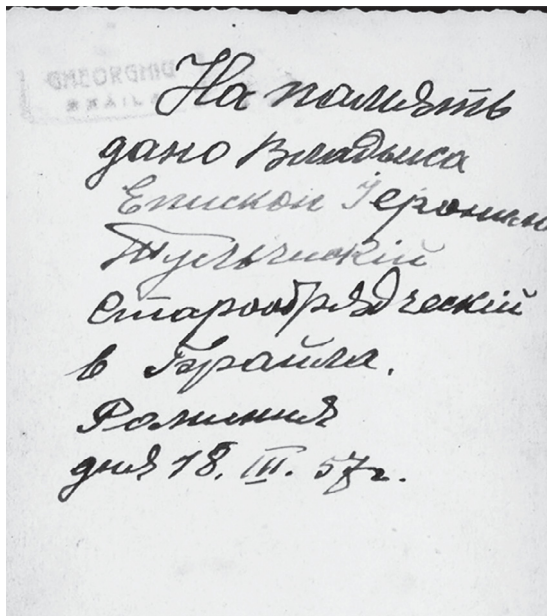 GHEORGHIU
BRAILA
На память
дано Владыка
Епископ Іероним
Тульчискій
Старообрядческій
в Браила.
Романия
дня 18. III. 57 г.